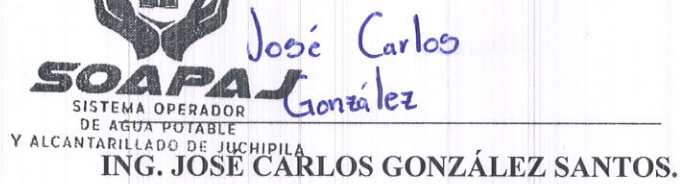 José Carlos
González
SOAPAJ
SISTEMA OPERADOR
DE AGUA POTABLE
Y ALCANTARILLADO DE JUCHIPILA
ING. JOSÉ CARLOS GONZÁLEZ SANTOS.